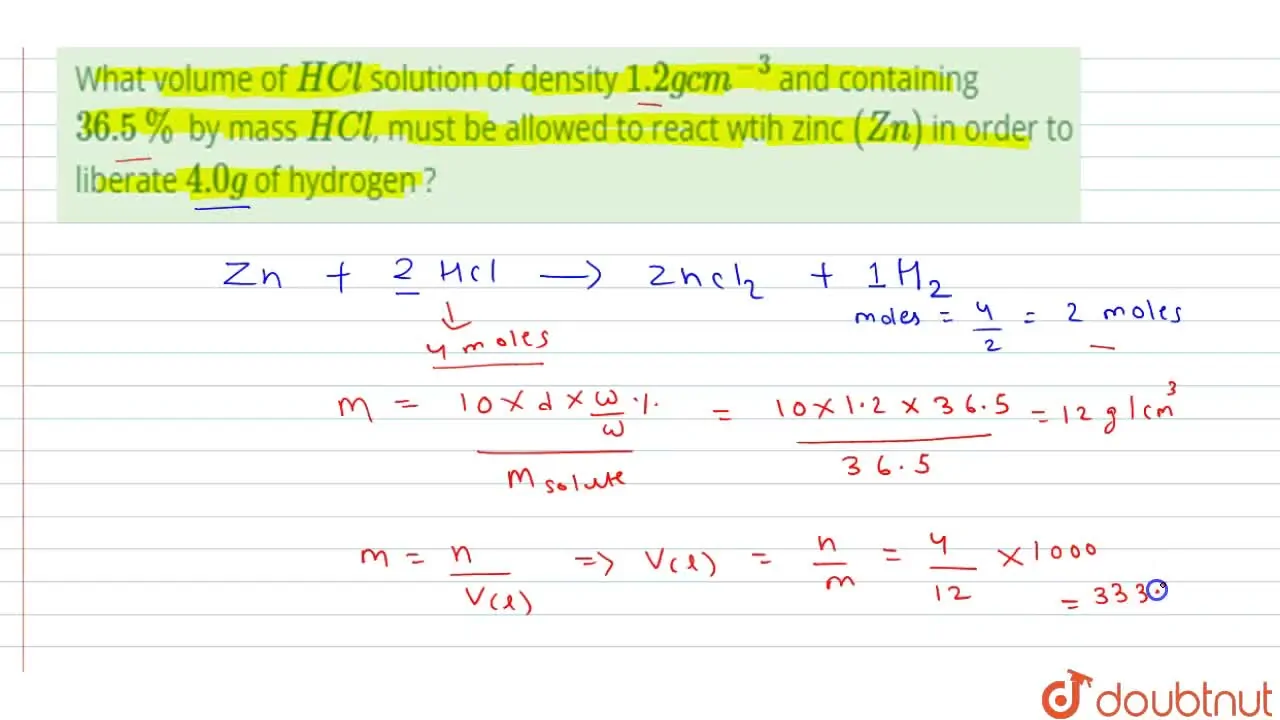 What volume of HCl solution of density 1.2gcm⁻³ and containing
36.5 % by mass HCl, must be allowed to react wtih zinc (Zn) in order to
liberate 4.0g of hydrogen ?
Zn + 2 HCl → ZnCl₂ + 1H₂
↓
4 moles
moles = 4/2 = 2 moles
m = 10 × d × w/w % / M solute = 10 × 1.2 × 36.5 / 36.5 = 12 g/cm³
m = n / V(l) => V(l) = n/m = 4/12 × 1000
= 333.
doubtnut